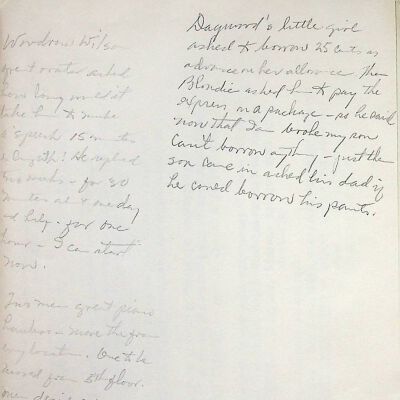 Woodrow Wilson
great orator asked
how long would it
take him to make
a speech 15 minutes
in length? He replied
two weeks - for 30
minutes a one day
and help - for one
hour - I can start
now.
Two men great piano
movers - move the from
any location. One to be
moved from 5th floor.
Dagwood's little girl
asked to borrow 25 cents as
advance on her allowance. Then
Blondie asked him to pay the
express on a package - as he said
now that I am broke my son
can't borrow anything - just then
son came in asked his dad if
he could borrow his pants.